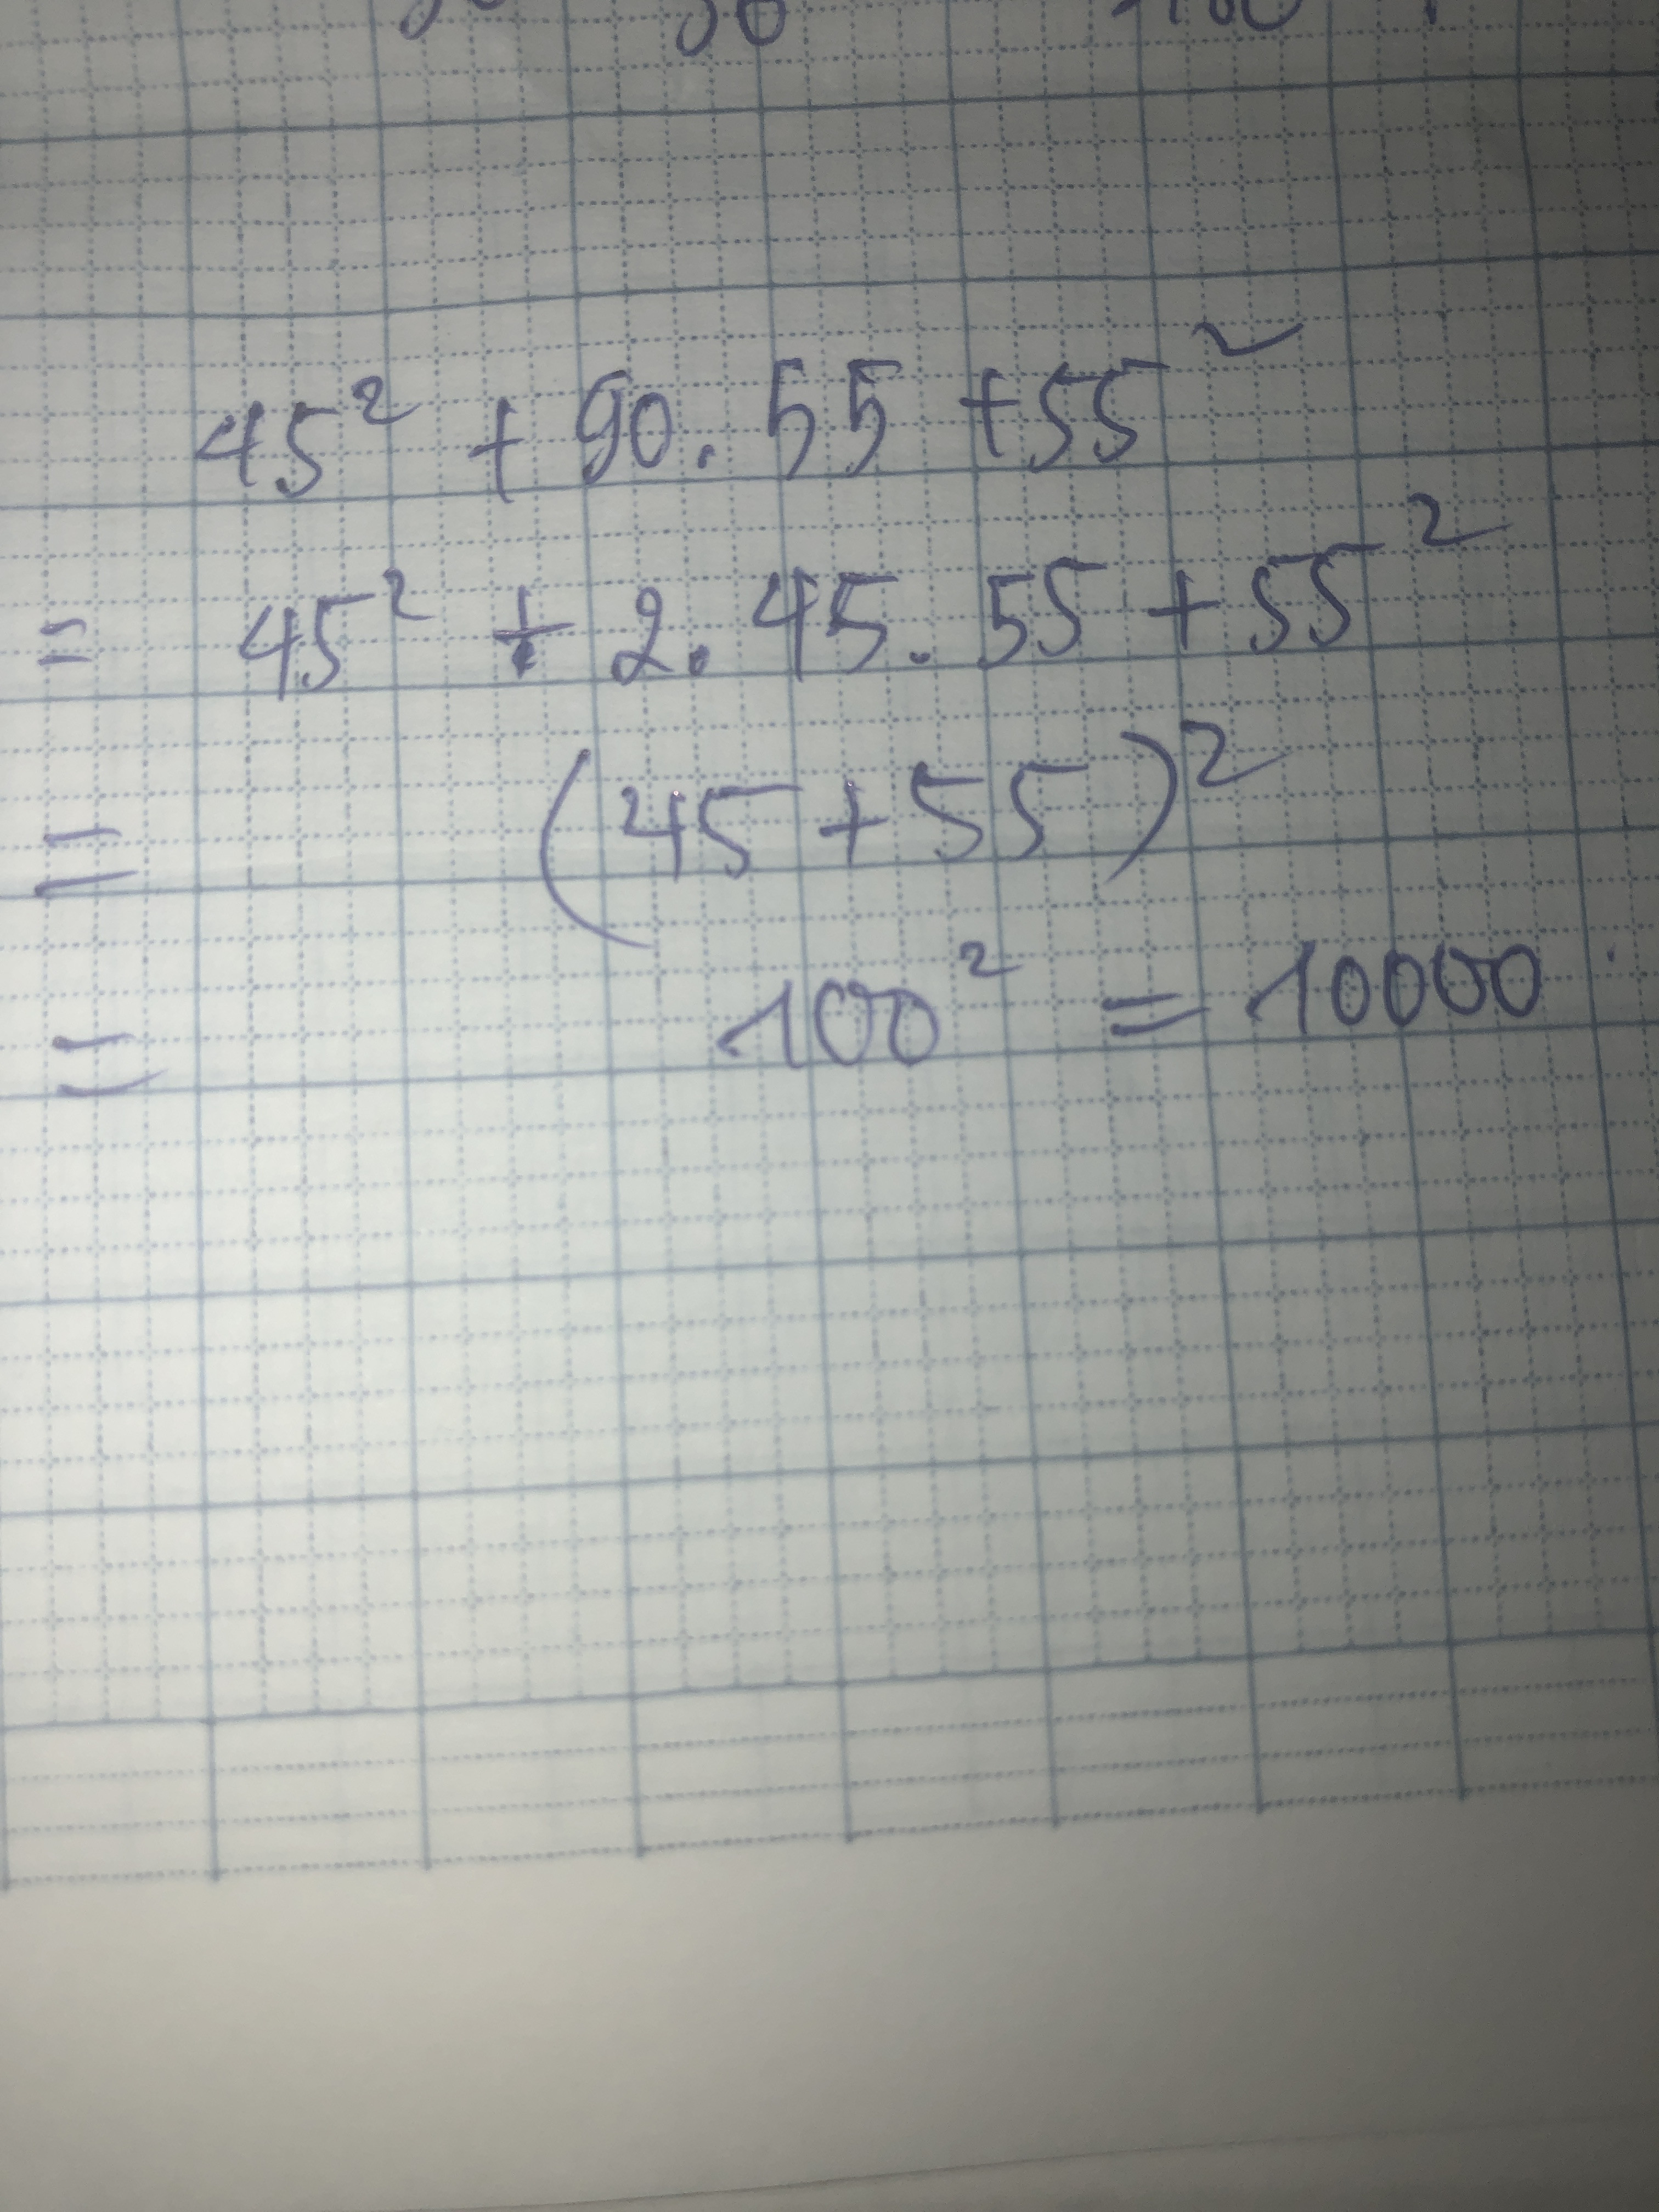 45² + 90.55 + 55²
= 45² + 2.45.55 + 55²
= (45 + 55)²
= 100² = 10000